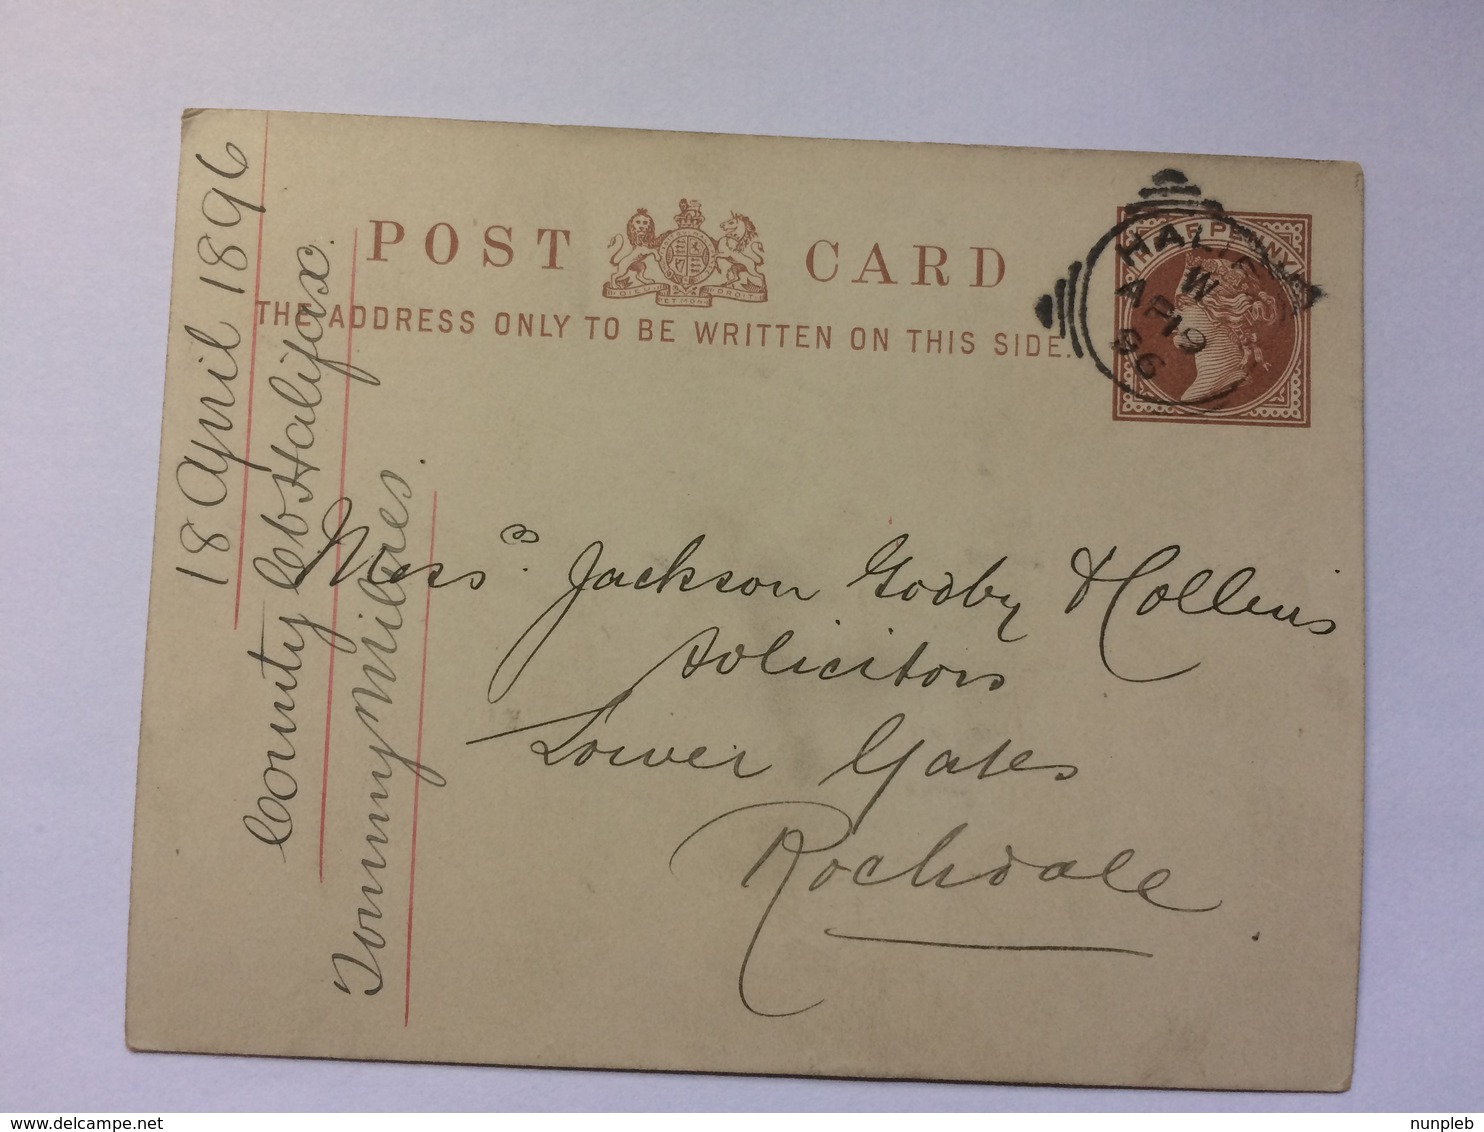 POST CARD
THE ADDRESS ONLY TO BE WRITTEN ON THIS SIDE.
HALFPENNY
HALIFAX
W
AP 19
96
Messrs. Jackson Godby & Collins
Solicitors
Lower Gates
Rochdale.
18 April 1896
County Ct Halifax.
Tommy Milnes.
delcampe.net
nunpleb